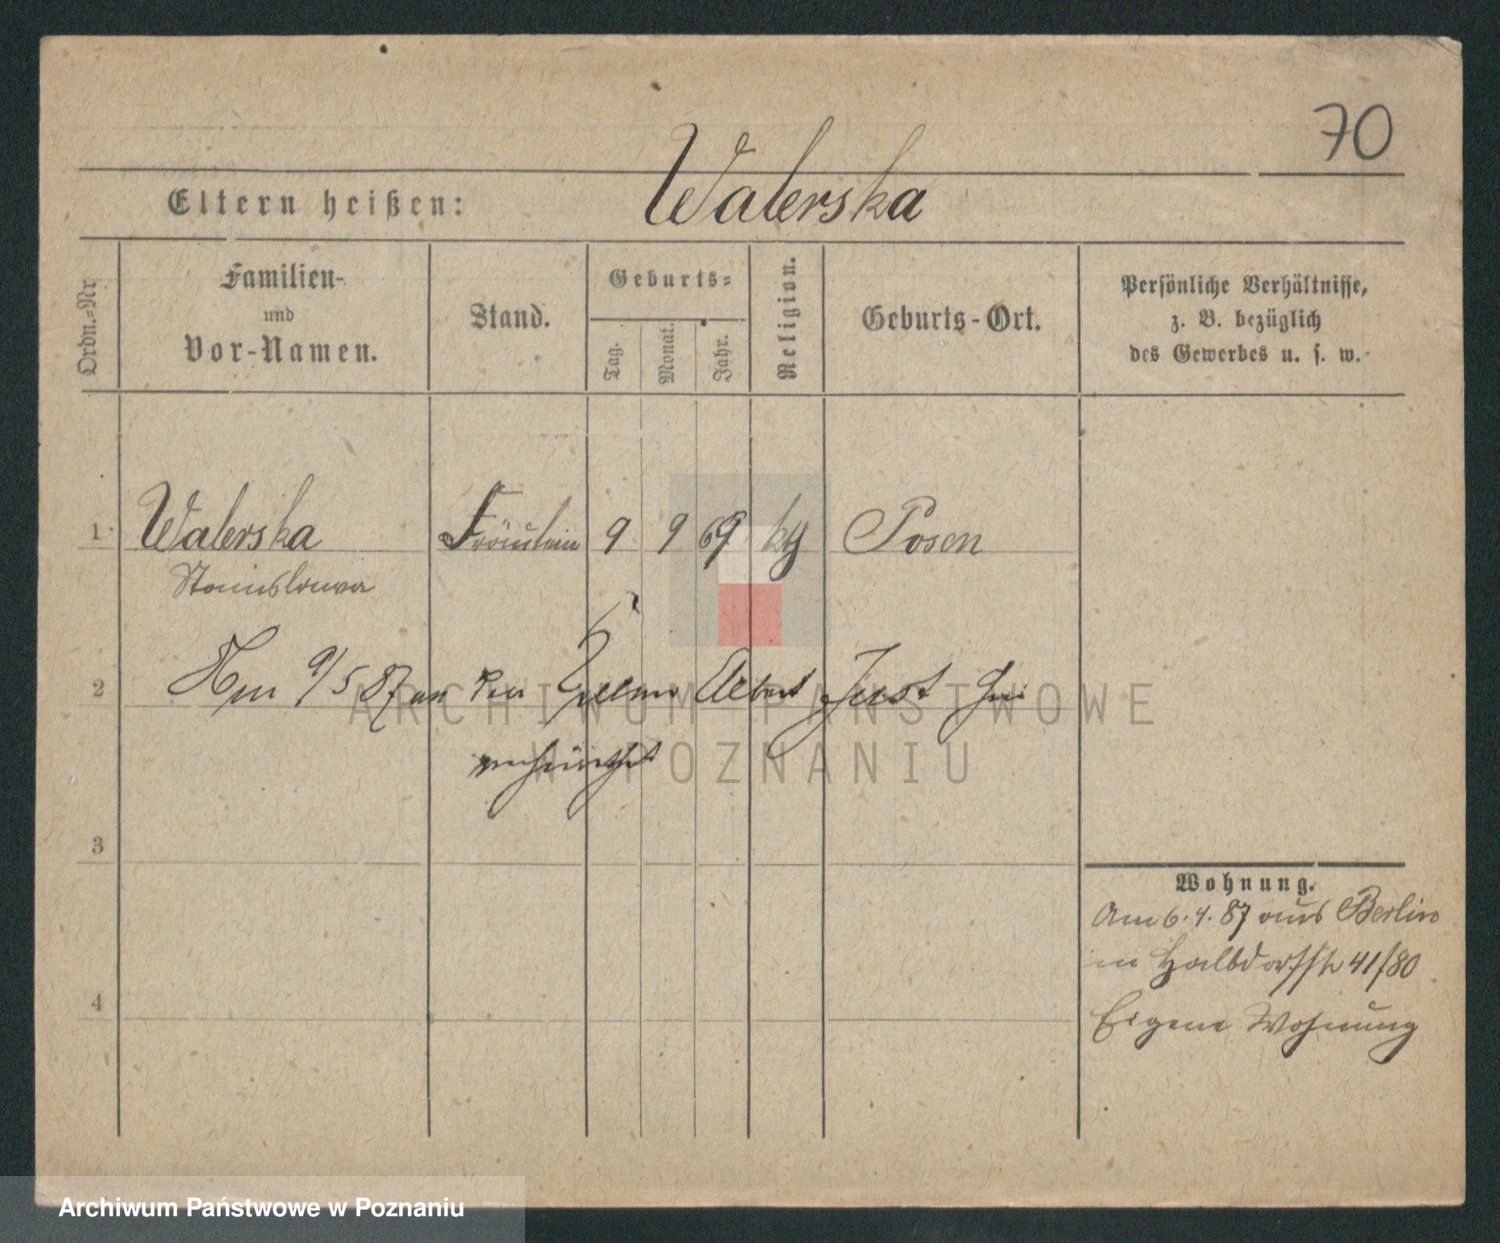 70
Walerska
Eltern heißen:
Ordn.-Nr
Familien-
und
Vor-Namen.
Stand.
Geburts-
Tag.
Monat.
Jahr.
Religion.
Geburts-Ort.
Persönliche Verhältnisse,
z. B. bezüglich
des Gewerbes u. s. w.
1 Walerska Fräulein 9 9 69 kg Posen
Stanislawa
2 Am 9/5 87 an den Albert Just
ARCHIWUM PAŃSTWOWE
W POZNANIU
3
Wohnung.
Am 6.4.87 aus Berlin
in Halbdorfstr 41/80
Eigene Wohnung
4
Archiwum Państwowe w Poznaniu